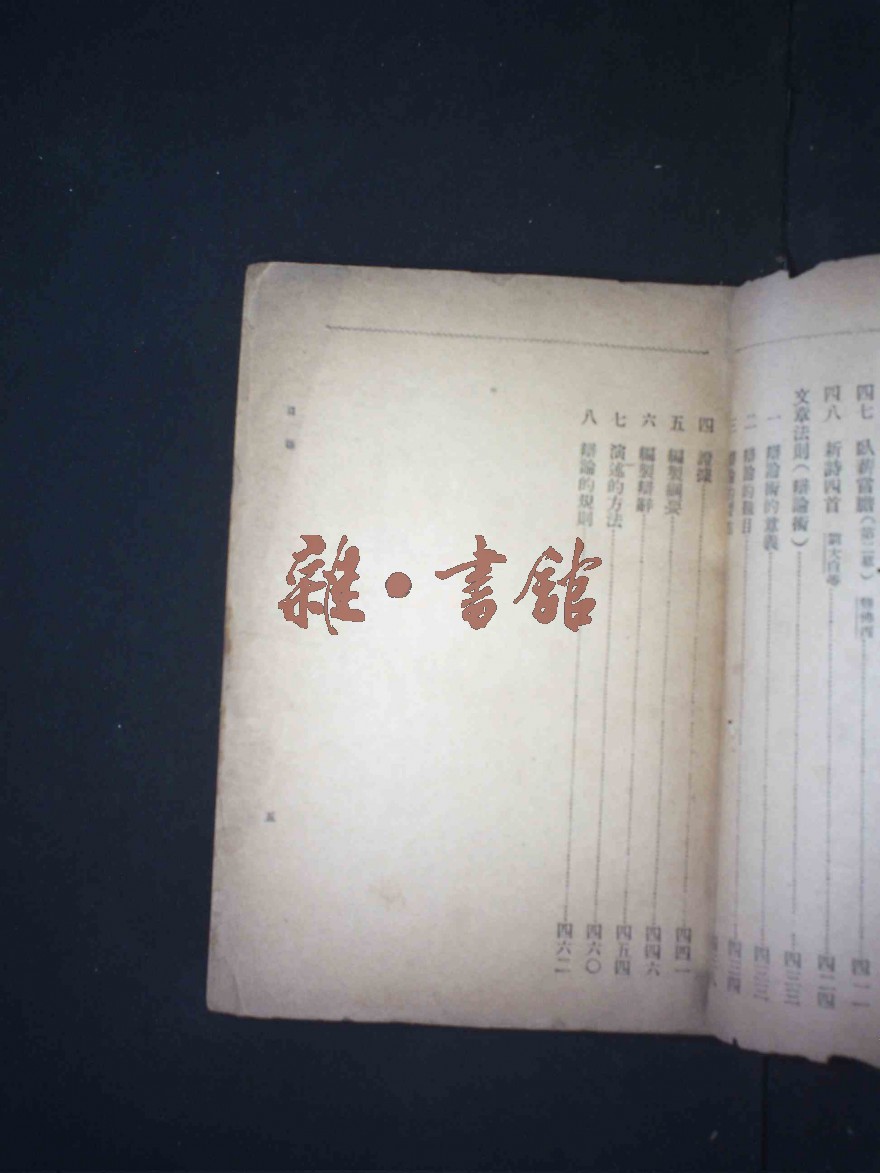 四七 臥薪嘗膽(第二幕) 熊佛西 四一一
四八 新詩四首 劉大白等 四二四
文章法則(辯論術) 四三三
一 辯論術的意義 四三三
二 辯論的題目 四三四
三
四 證據 四四一
五 編製綱要 四四六
六 編製辯辭 四五四
七 演述的方法 四六〇
八 辯論的規則 四六二
目
五
雜·書館